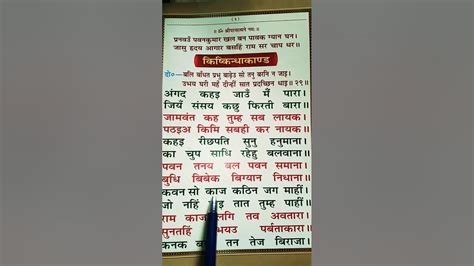 (१)
॥ ॐ श्रीपरमात्मने नमः ॥
प्रनवउँ पवनकुमार खल बन पावक ग्यान घन।
जासु हृदय आगार बसहिं राम सर चाप धर॥
किष्किन्धाकाण्ड
दो०— बलि बाँधत प्रभु बाढ़ेउ सो तनु बरनि न जाइ।
उभय घरी महँ दीन्हीं सात प्रदच्छिन धाइ॥ २९॥
अंगद कहइ जाउँ मैं पारा।
जियँ संसय कछु फिरती बारा।
जामवंत कह तुम्ह सब लायक।
पठइअ किमि सबही कर नायक।
कहइ रीछपति सुनु हनुमाना।
का चुप साधि रहेहु बलवाना।
पवन तनय बल पवन समाना।
बुधि बिबेक बिग्यान निधाना।
कवन सो काज कठिन जग माहीं।
जो नहिं इ तात तुम्ह पाहीं।
राम काज लगि तव अवतारा।
सुनतहिं भयउ पर्बताकारा।
कनक तन तेज बिराजा।